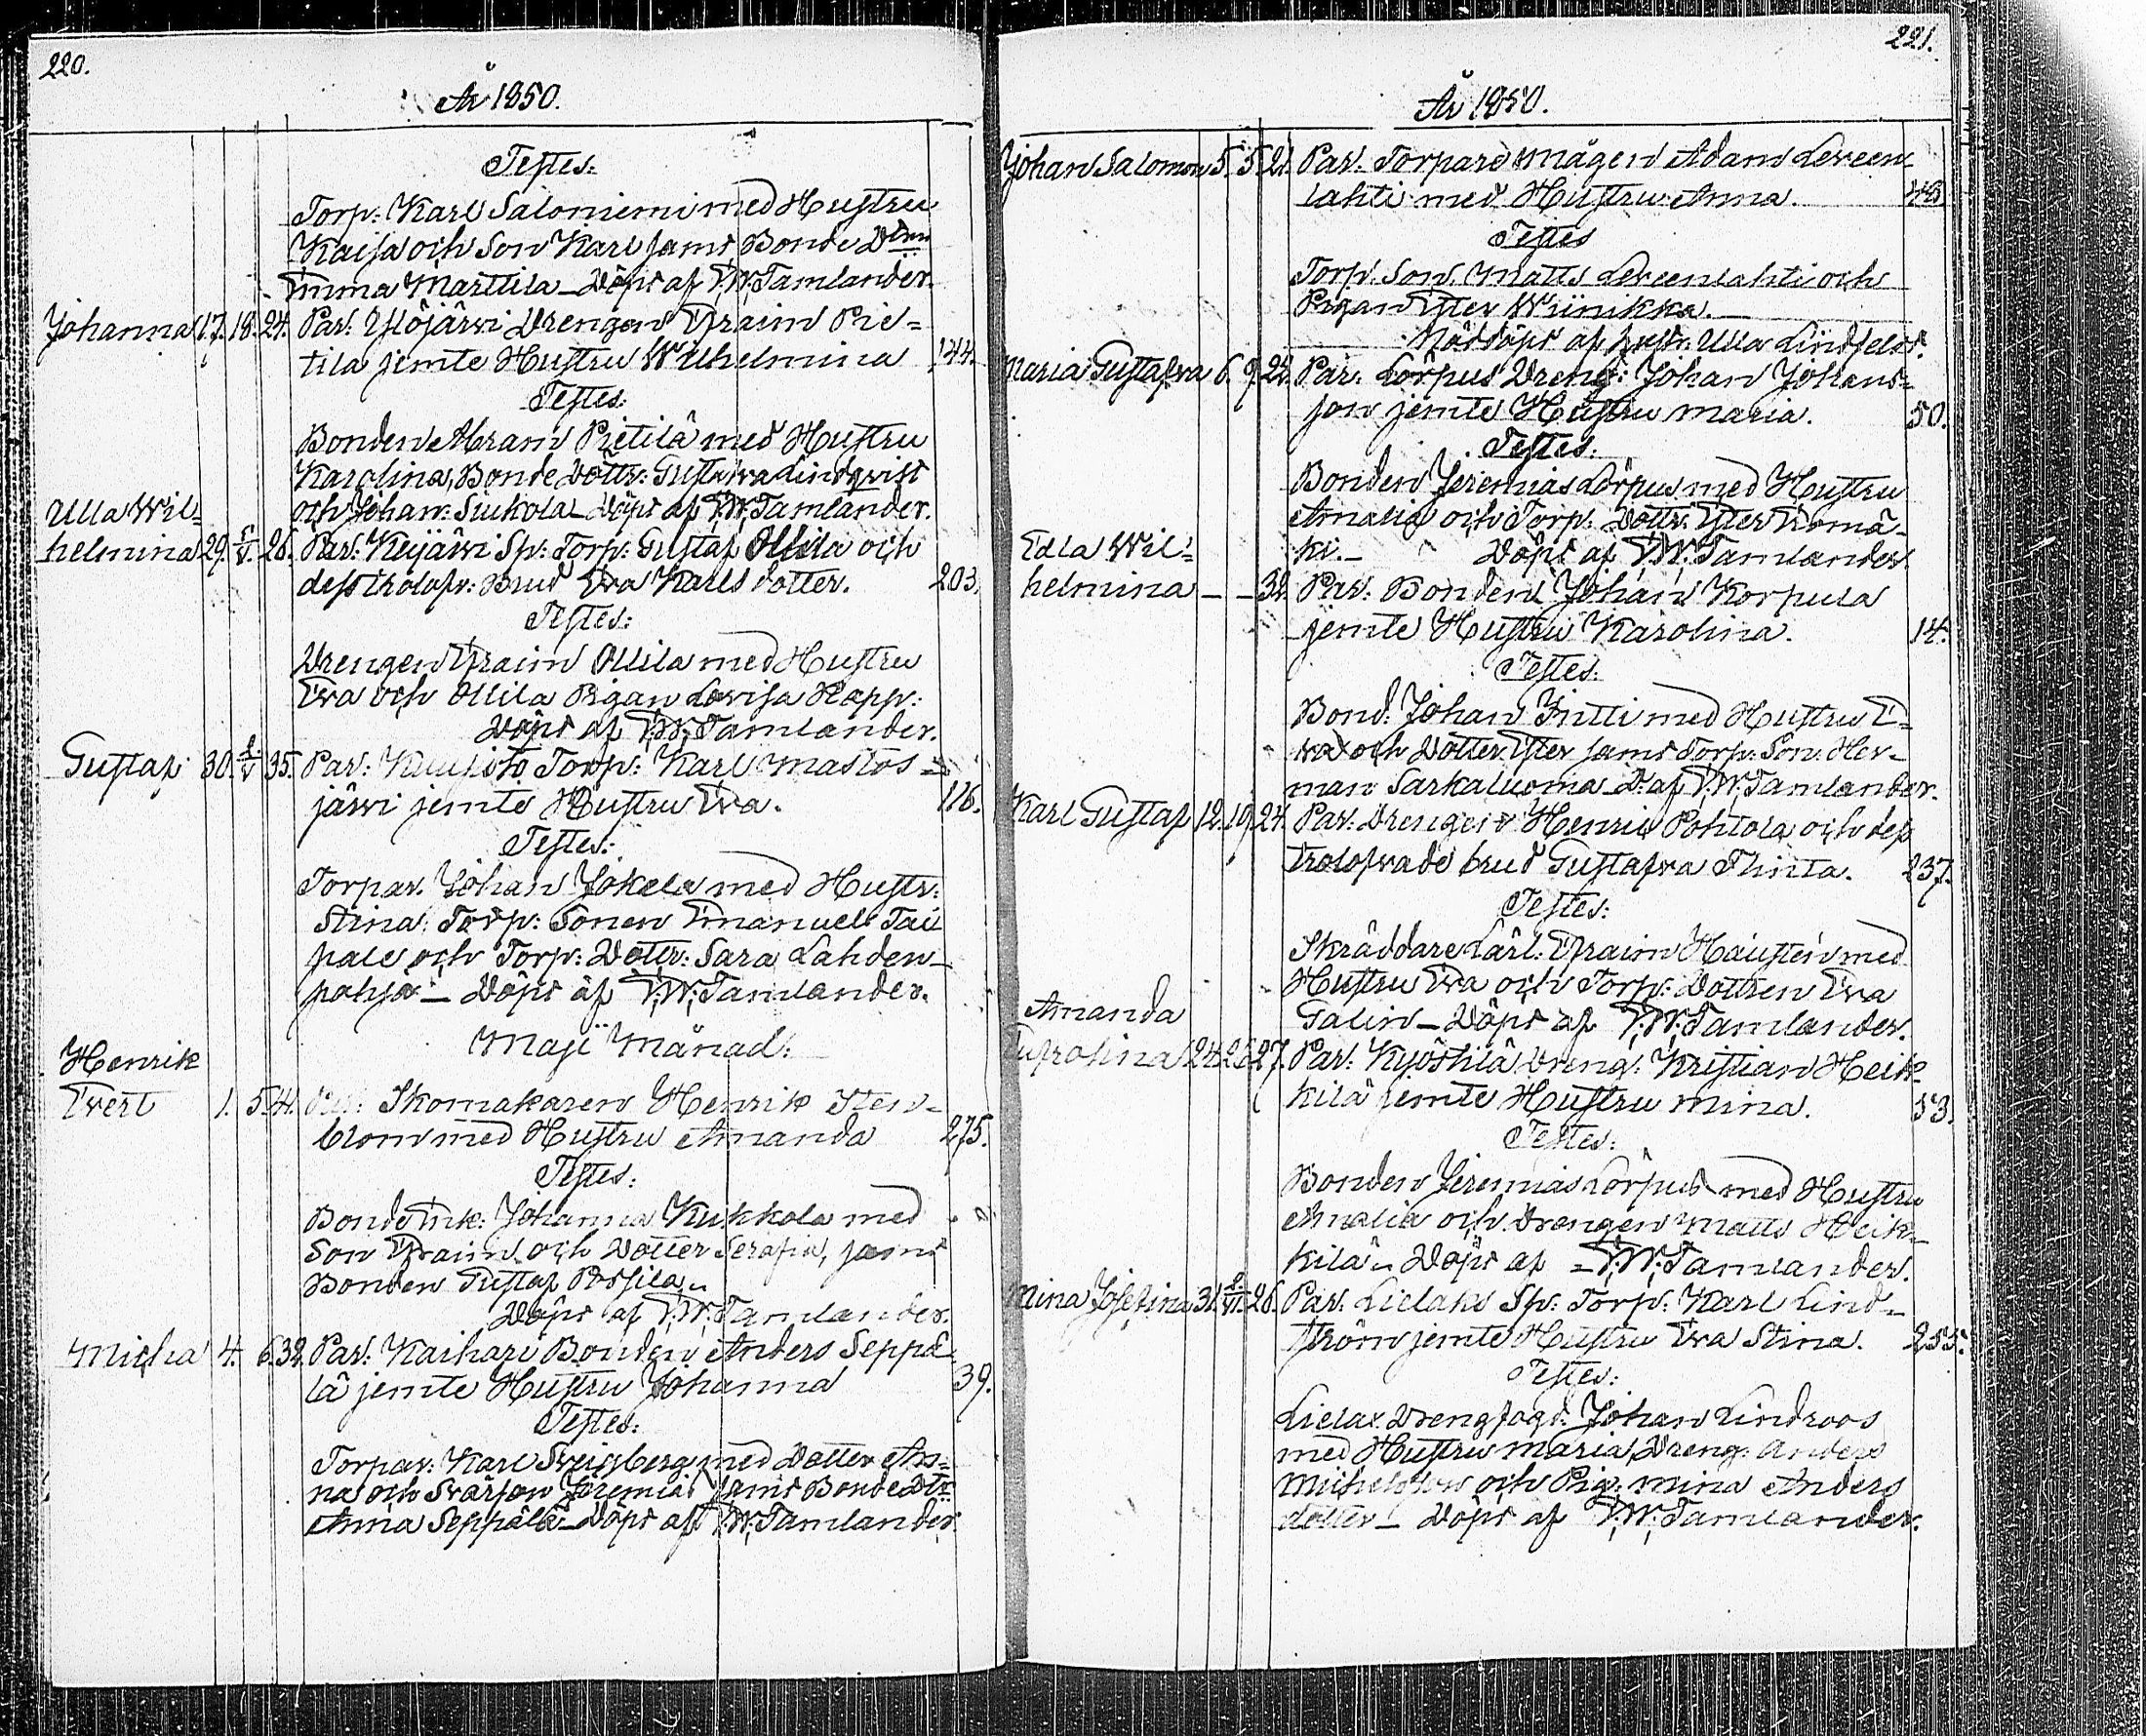 220.
År 1850.
Testes:
Torp: Karl Saloniemi med Hustru
Kaisa och Son Karl samt Bonde Dttrn
Emma Marttila _ Döpt af F.W. Tamlander.
Johanna 17. 18. 24. Par: Ylöjärwi Drengen Efraim Pie=
tila jemte Hustru Wilhelmina 144.
Testes.
Bonden Abram Pietilä med Hustru
Karolina, Bonde Dottr: Gustawa Lindqvist
och Johan: Siukola _ Döpt af F.W. Tamlander.
Ulla Wil=
helmina 29. 5/V. 26. Par: Keijärwi Sp: Torp: Gustaf Ollila och
dess trolofv: Brud Eva Karls dotter. 203.
Testes:
Drengen Efraim Ollila med Hustru
Eva och Ollila Pigan Lovisa Kapp:
Döpt af F.W. Tamlander.
Gustaf 30. 35. Par: Torp: Karl Mastos=
järwi jemte Hustru Eva. 116.
Testes:
Torpar. Johan Jokela med Hustr:
Stina, Torp: Sonen Emanuel Tai
pale och Torp: Dottr: Sara Lahden_
pohja _ Döpt af F.W. Tamlander.
Maji Månad:
Henrik
Evert 1. 5. 41. Par: Skomakaren Henrik Sten=
blom med Hustru Amanda 275.
Testes:
Bonde Enk: Johanna Kukkola med
Son Efraim och Dotter Serafia, samt
Bonden Gustaf Possila
Döpt af F.W. Tamlander.
Micka 4. 6. 32. Par: Kaihari Bonden Anders Seppä
lä jemte Hustru Johanna 39.
Testes:
Torpar: Karl Sveisberg med Dotter An=
na och Svärson Jeremias samt Bonde Dtr
Anna Seppälä _ Döpt af F.W. Tamlander
221.
År 1850.
Johan Salomon 5. 5. 21. Par. Torpare Mågen Adam Leveen
lahti med Hustru Anna. 48.
Testes
Torp. Son. Matts Leveenlahti och
Pigan Ester Wiinikka.
Nöddöpt af hustr: Ulla Lindfelt.
Maria Gustafva 6. 9. 22. Par: Lörpus Dreng: Johan Johans=
son jemte Hustru Maria. 50.
Testes.
Bonden Jeremias Lörpus med Hustru
Amalia och Torp. Dottr. Ester Kromä_
ki. _ Döpt af F.W. Tamlander
Edla Wil=
helmina _ _ 32. Par: Bonden Johan Korpula
jemte Hustru Karolina. 14.
Testes:
Bond: Johan Yntti med Hustru E=
va och Dotter Ester samt Torp: Son: Her_
man Sarkaluoma _ D: af F.W. Tamlander.
Karl Gustaf 12. 19. 24. Par: Drengen Henrik Pohtola och dess
trolofvade brud Gustafva Thinta. 237.
Testes:
Skräddare Lärl: Efraim Hausten med
Hustru Eva och Torp: Dottren Eva
Galin _ Döpt af F.W. Tamlander.
Amanda
Eufrosina 24. 26. 27. Par: Kyöstilä Dreng: Kristian Heik=
kilä jemte Hustru Mina. 53.
Testes:
Bonden Jeremias Lörpus med Hustru
Amalia och Drengen Matts Heik_
kilä. Döpt af F.W. Tamlander.
Mina Josefina 31. 2/VI. 26. Par: Lielaks Sp: Torp: Karl Lind_
ström jemte Hustru Eva Stina. 255.
Testes:
Lielax Drengfogd: Johan Lindroos
med Hustru Maria, Dreng: Anders
Michelsson och Pig: Mina Anders
dotter _ Döpt af F.W. Tamlander.